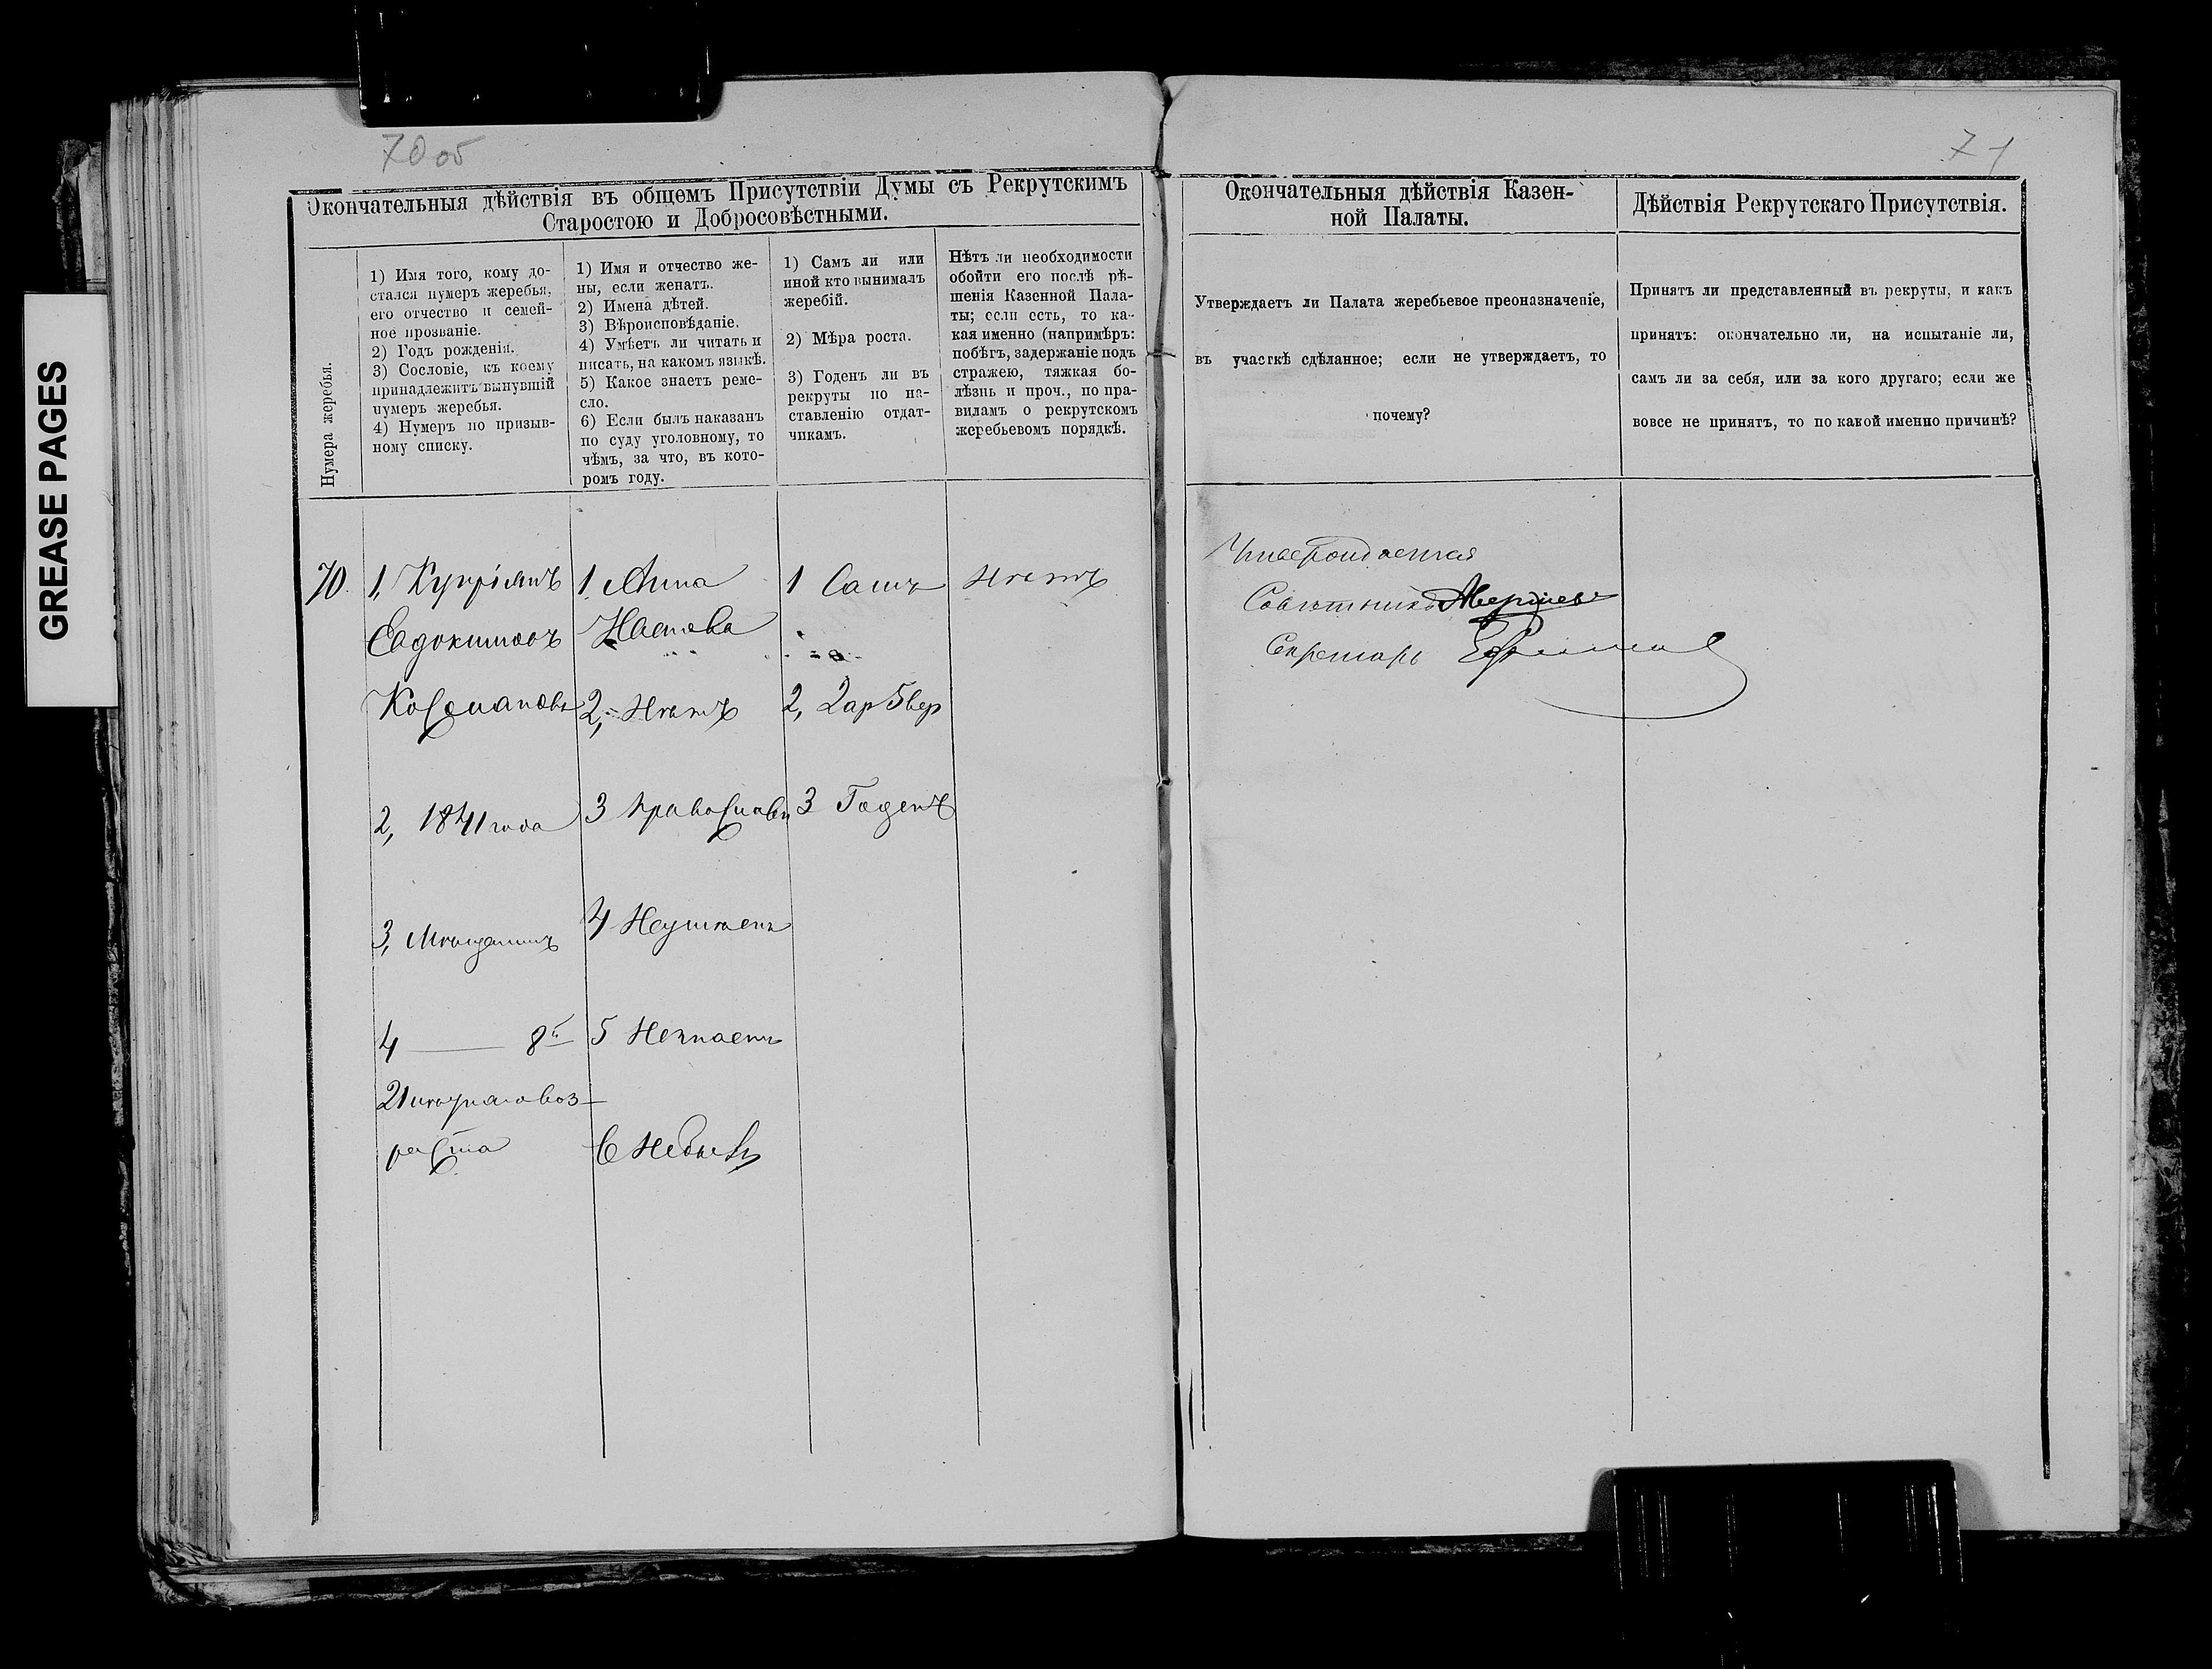 GREASE PAGES
70 об
71
Окончательныя дѣйствія въ общемъ Присутствіи Думы съ Рекрутскимъ
Старостою и Добросовѣстными.
Нумера жеребья.
1) Имя того, кому до-
стался нумеръ жеребья,
его отчество и семей-
ное прозваніе.
2) Годъ рожденія.
3) Сословіе, къ коему
принадлежитъ вынувшій
нумеръ жеребья.
4) Нумеръ по призыв-
ному списку.
1) Имя и отчество же-
ны, если женатъ.
2) Имена дѣтей.
3) Вѣроисповѣданіе.
4) Умѣетъ ли читать и
писать, на какомъ языкѣ.
5) Какое знаетъ реме-
сло.
6) Если былъ наказанъ
по суду уголовному, то
чѣмъ, за что, въ кото-
ромъ году.
1) Самъ ли или
иной кто вынималъ
жеребій.
2) Мѣра роста.
3) Годенъ ли въ
рекруты по на-
ставленію отдат-
чикамъ.
Нѣтъ ли необходимости
обойти его послѣ рѣ-
шенія Казенной Пала-
ты; если есть, то ка-
кая именно (напримѣръ:
побѣгъ, задержаніе подъ
стражею, тяжкая бо-
лѣзнь и проч., по пра-
виламъ о рекрутскомъ
жеребьевомъ порядкѣ.
Окончательныя дѣйствія Казен-
ной Палаты.
Утверждаетъ ли Палата жеребьевое преоназначеніе,
въ участкѣ сдѣланное; если не утверждаетъ, то
почему?
Дѣйствія Рекрутскаго Присутствія.
Принятъ ли представленный въ рекруты, и какъ
принятъ: окончательно ли, на испытаніе ли,
самъ ли за себя, или за кого другаго; если же
вовсе не принятъ, то по какой именно причинѣ?
70.
1, Купріянъ
Евдокимовъ
2, 1841 года
3, Мѣщанинъ
4 — 8й
21 лѣтняго воз-
раста
1, Анна
2, Нѣтъ
3 Православн
4 Неумѣетъ
5 Незнаетъ
6 Небылъ
1 Самъ
2, 2 ар 5 вер
3 Годенъ
Нѣтъ
Утверждается
Совѣтникъ
Секретарь